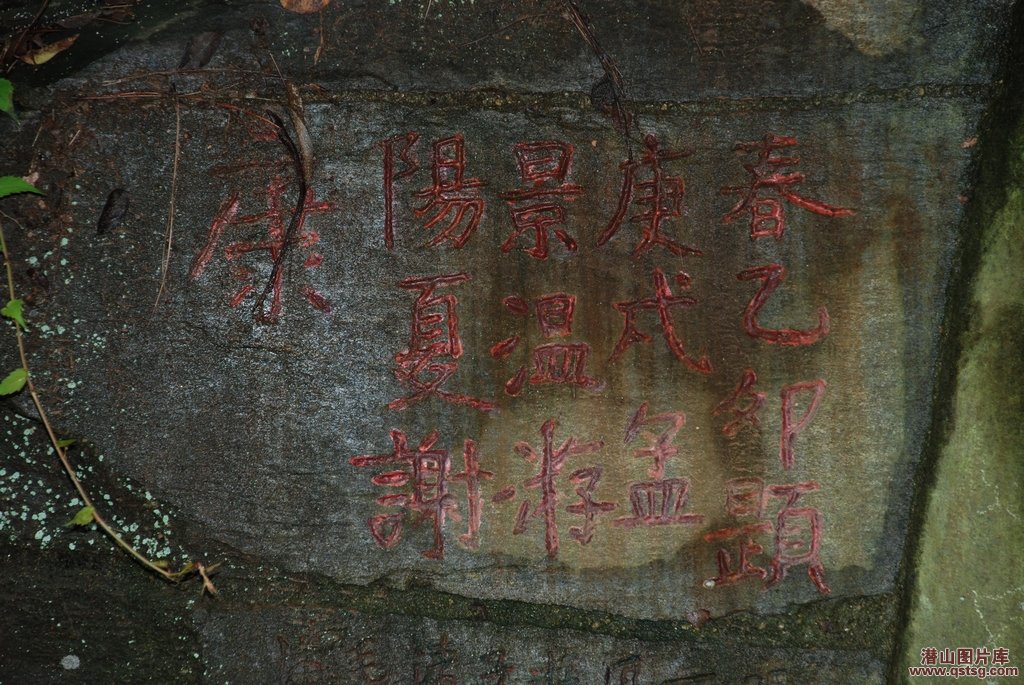 康
陽夏謝
景温游
庚戌孟
春乙卯題
潜山图片库
www.qstsg.com